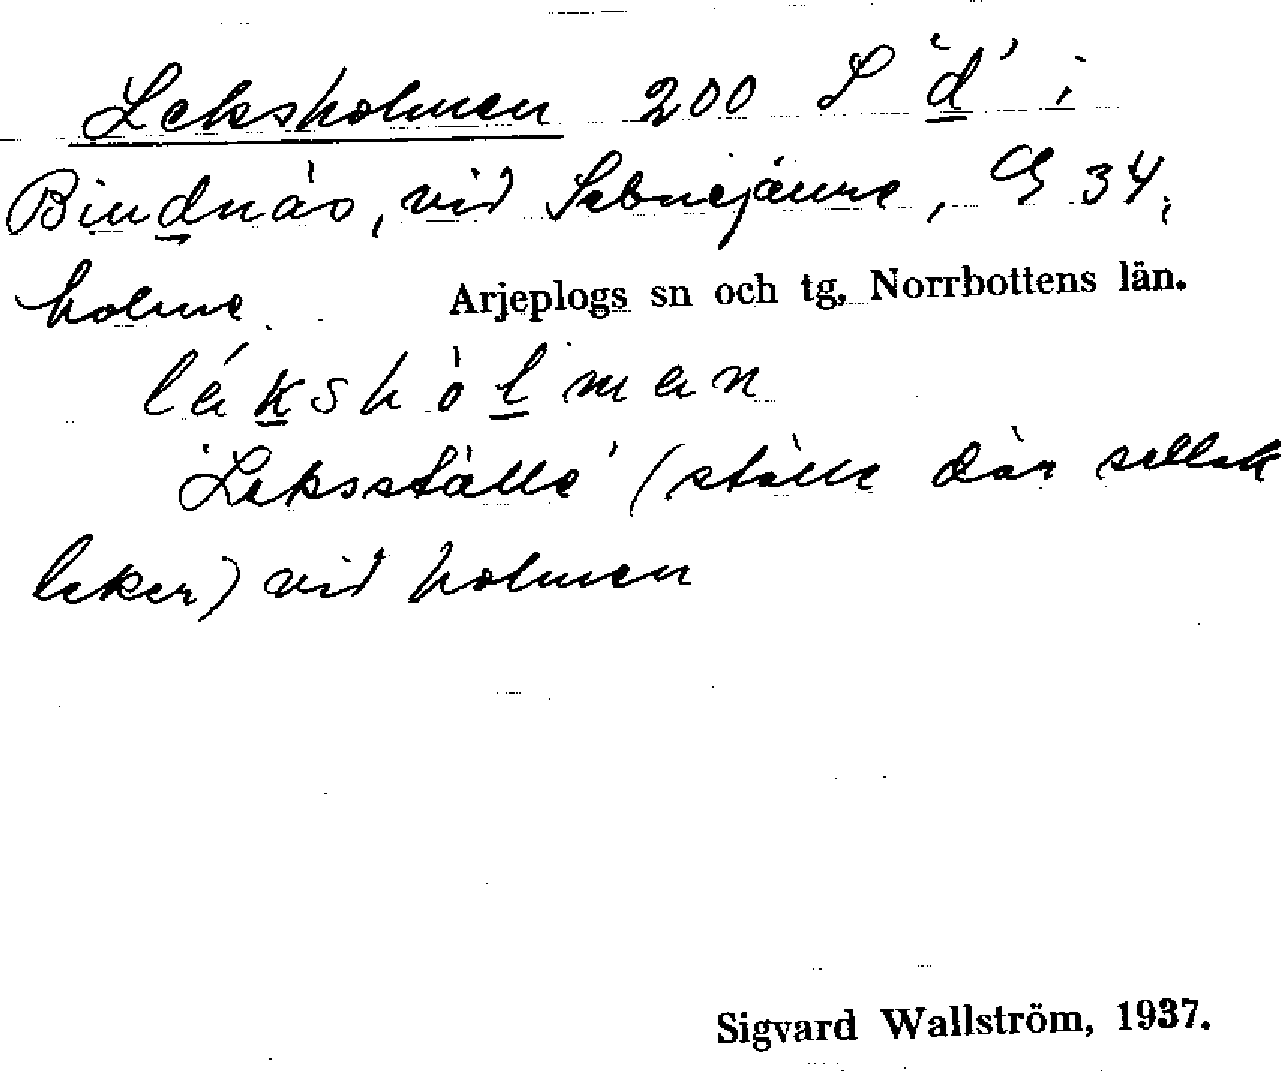 Leksholmen 200 S "d" i
Bindnäs, vid Sebnejaure, G 34,
holme
Arjeplogs sn och tg, Norrbottens län.
lékshòlmen
"Leksställe" (ställe där sellak
leker) vid holmen
Sigvard Wallström, 1937.